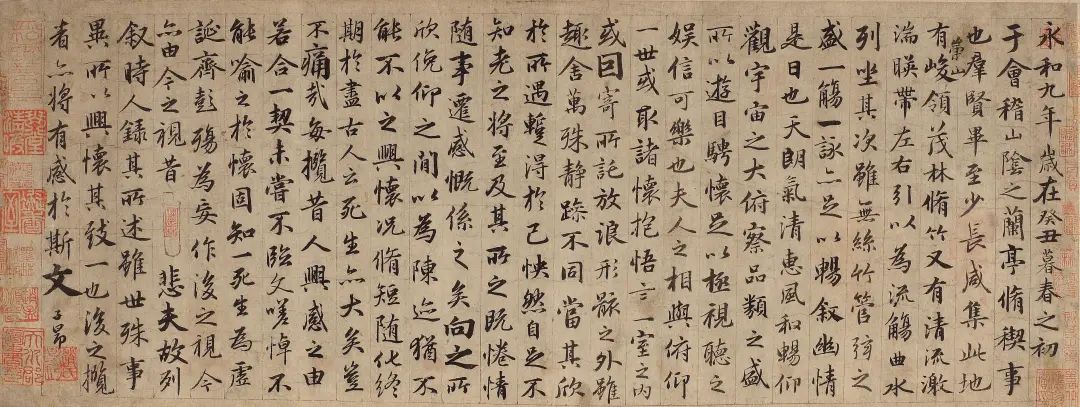 永和九年歲在癸丑暮春之初
于會稽山陰之蘭亭脩禊事
也羣賢畢至少長咸集此地
有崇山峻領茂林脩竹又有清流激
湍暎帶左右引以為流觴曲水
列坐其次雖無絲竹管弦之
盛一觴一詠亦足以暢叙幽情
是日也天朗氣清惠風和暢仰
觀宇宙之大俯察品類之盛
所以遊目騁懷足以極視聽之
娛信可樂也夫人之相與俯仰
一世或取諸懷抱悟言一室之內
或因寄所託放浪形骸之外雖
趣舍萬殊静躁不同當其欣
於所遇蹔得於己怏然自足不
知老之將至及其所之既惓情
隨事遷感慨係之矣向之所
欣俛仰之間以為陳迹猶不
能不以之興懷況脩短隨化終
期於盡古人云死生亦大矣豈
不痛哉每攬昔人興感之由
若合一契未嘗不臨文嗟悼不
能喻之於懷固知一死生為虛
誕齊彭殤為妄作後之視今
亦由今之視昔悲夫故列
叙時人錄其所述雖世殊事
異所以興懷其致一也後之攬
者亦將有感於斯文
子昂